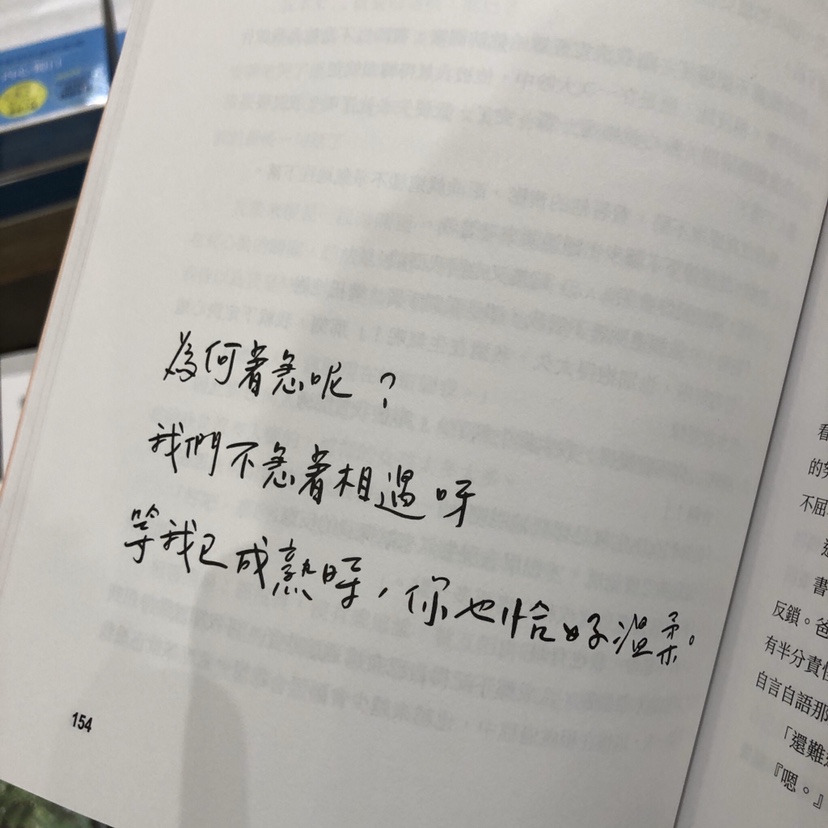 為何著急呢？
我們不急著相遇呀
等我已成熟時，你也恰好溫柔。
154
看
的
不屈
書
反鎖。爸
有半分責
自言自語那
「還難
『嗯。』